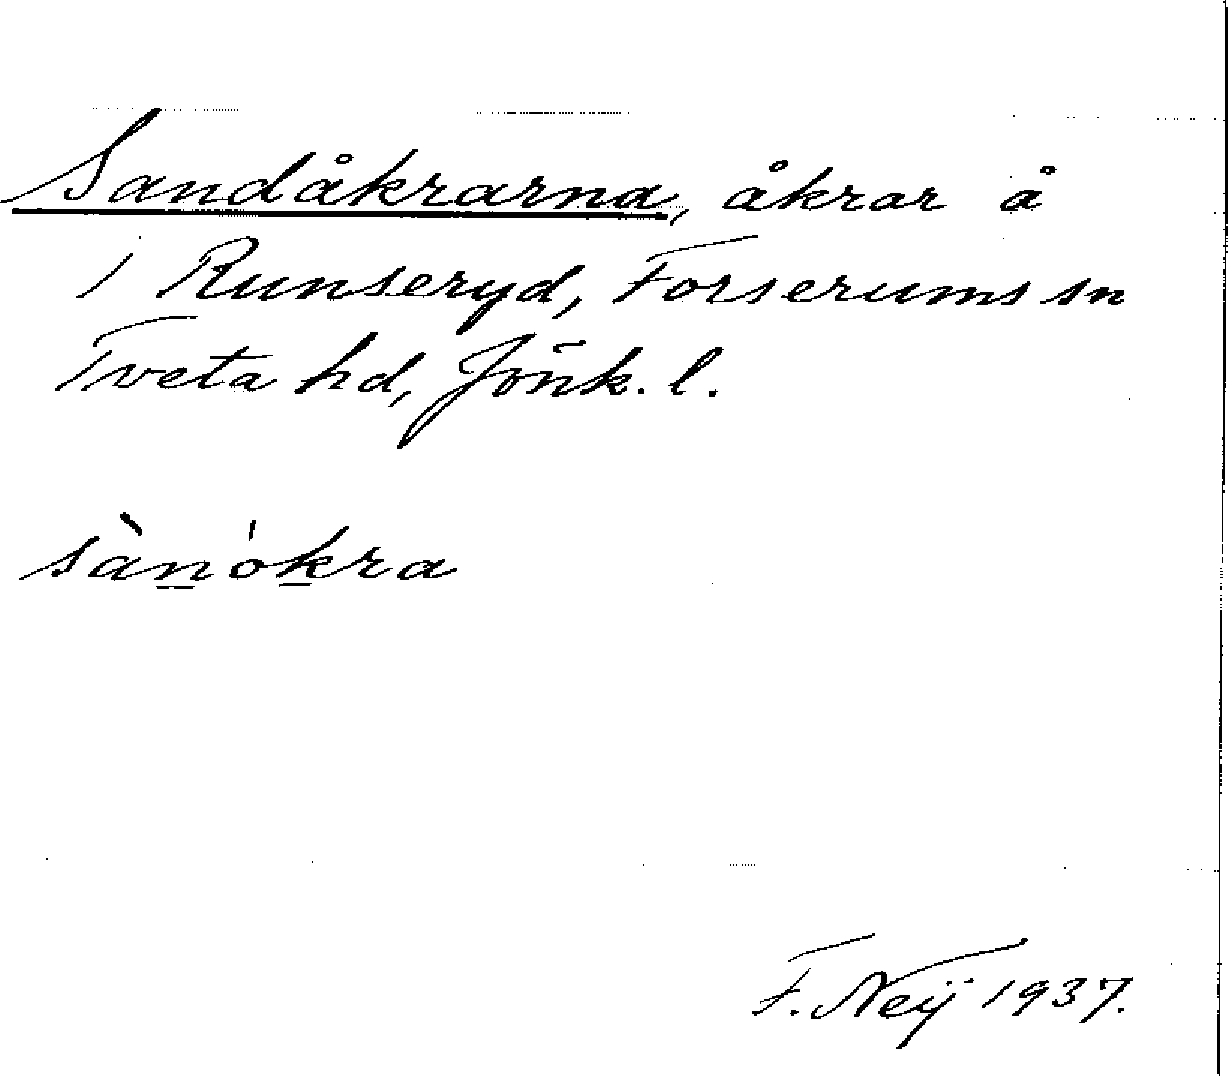 Sandåkrarna, åkrar å
1 Runseryd, Forserums sn
Tveta hd, Jönk. l.
sàn̲ók̲ra
F. Neij 1937.